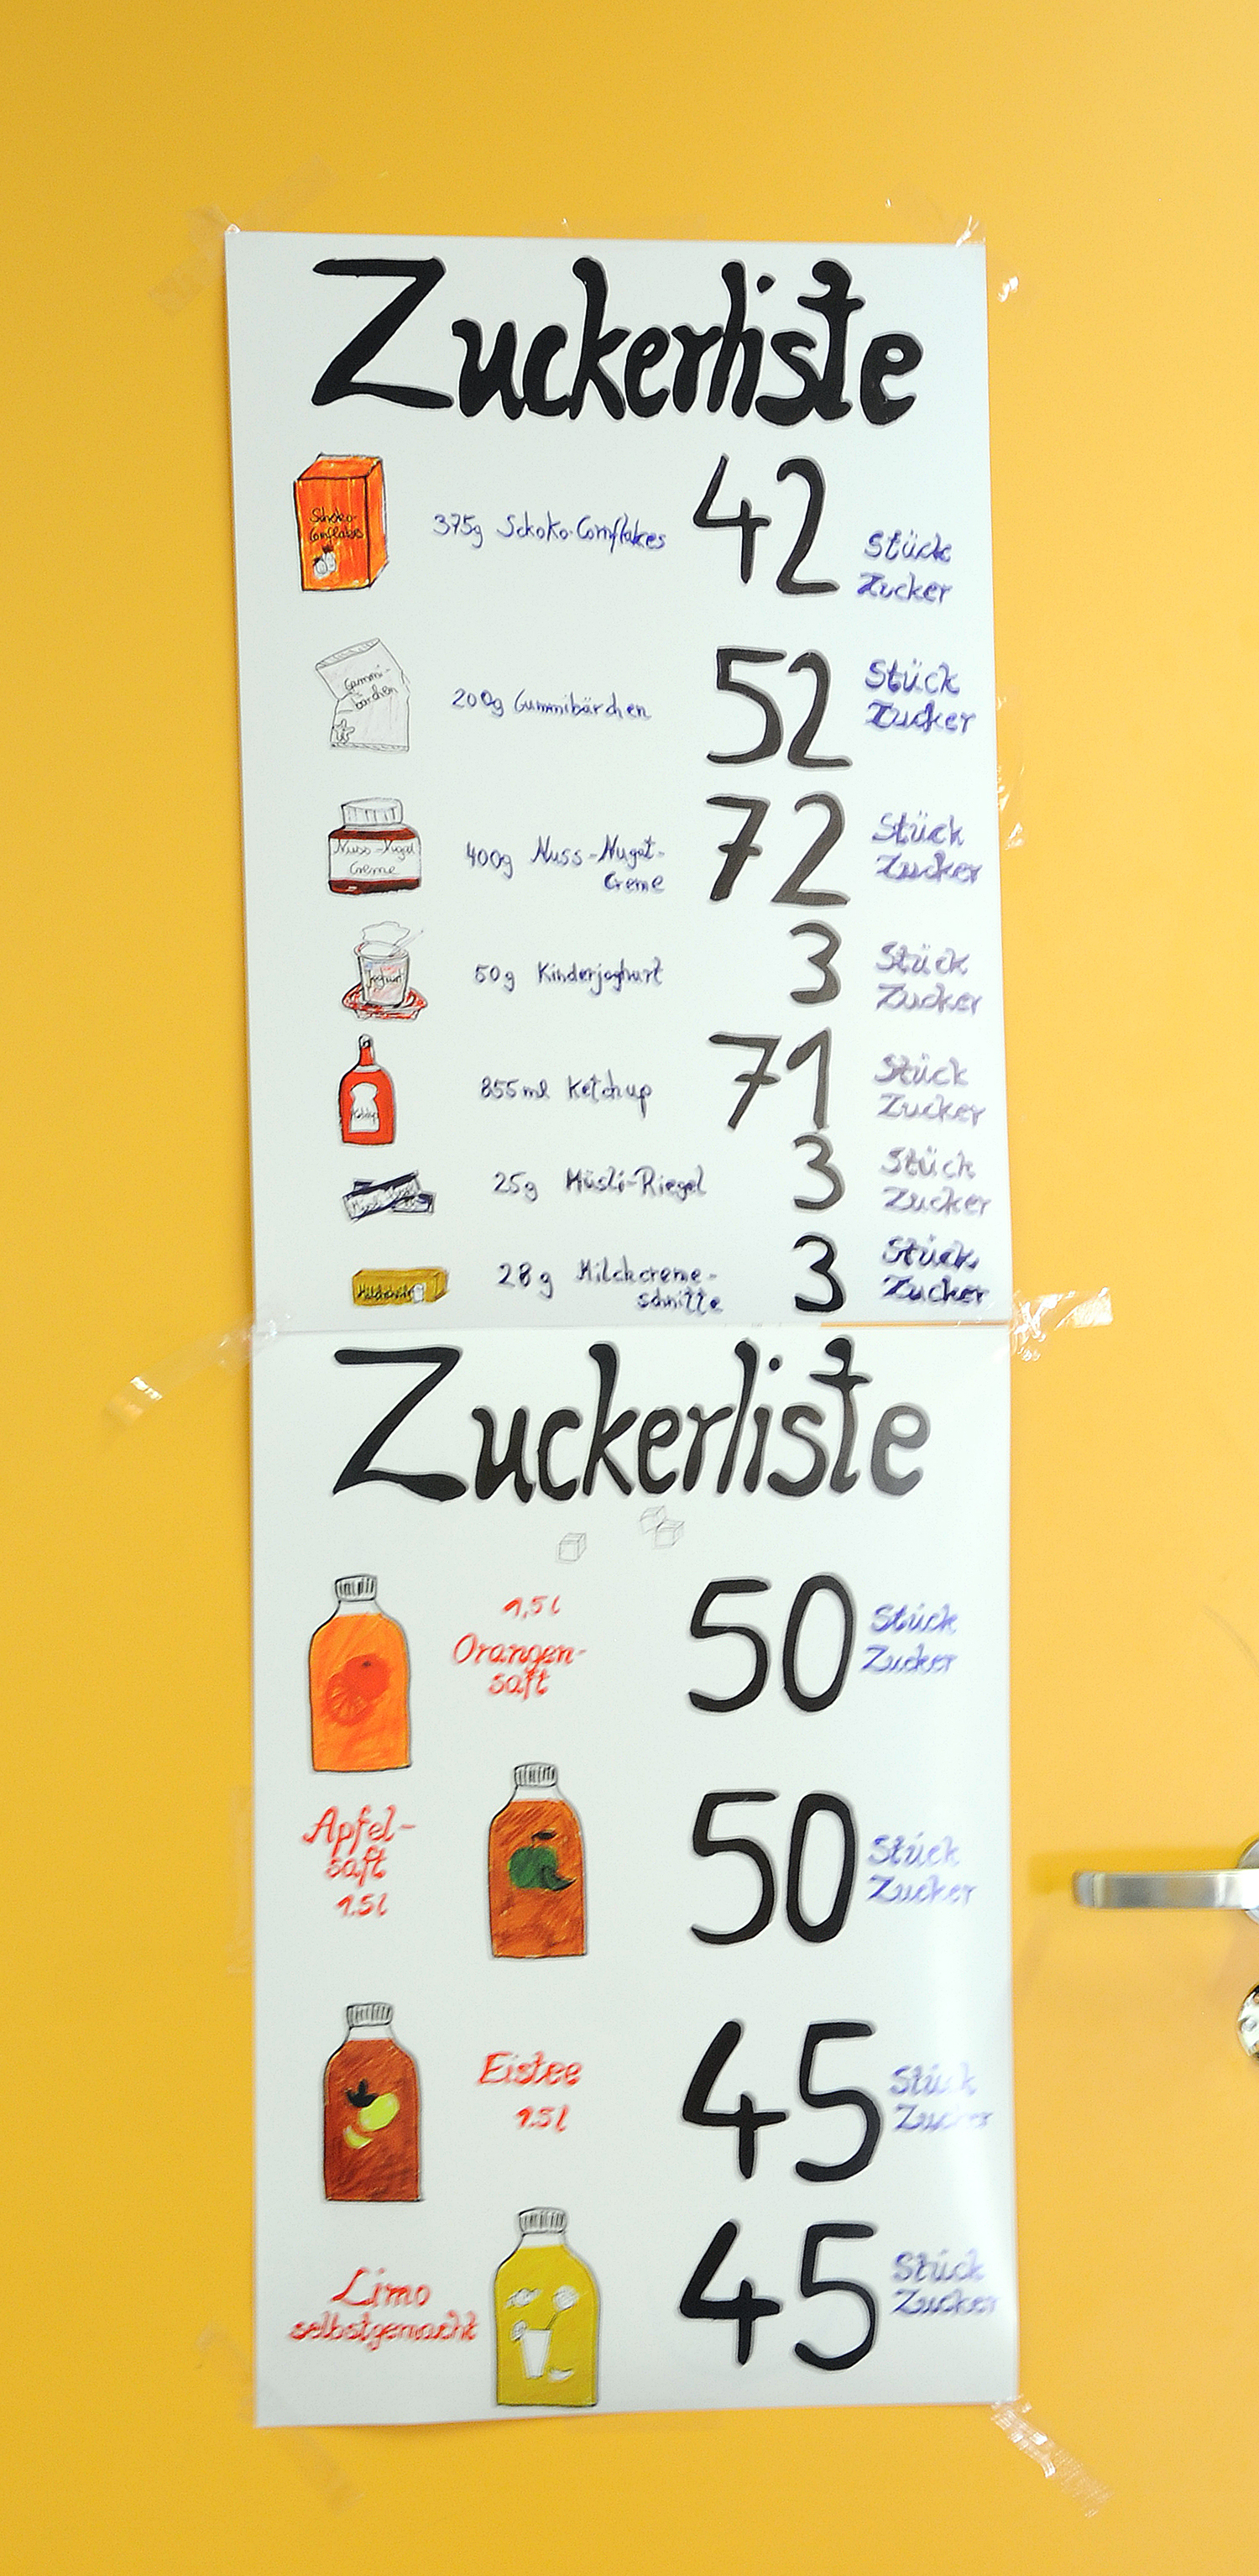 Zuckerliste
Schoko-
Cornflakes
375g Schoko-Cornflakes
42
Stück
Zucker
Gummi-
bärchen
200g Gummibärchen
52
Stück
Zucker
Nuss-Nugat
Creme
400g Nuss-Nugat-
Creme
72
Stück
Zucker
Joghurt
50g Kinderjoghurt
3
Stück
Zucker
Ketchup
855ml Ketchup
71
Stück
Zucker
25g Müsli-Riegel
3
Stück
Zucker
28g Milchcreme-
schnitte
3
Stück
Zucker
Zuckerliste
1,5l
Orangen-
saft
50
Stück
Zucker
Apfel-
saft
1.5l
50
Stück
Zucker
Eistee
1.5l
45
Stück
Zucker
Limo
selbstgemacht
45
Stück
Zucker